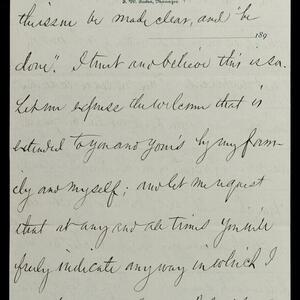 Manager
189
this son be made clear, and "be
done". I trust and believe this is so.
Let me express the welcome that is
extended to you and your's by my fam-
ily and myself; and let me request
that at any and all times you will
freely indicate any way in which I